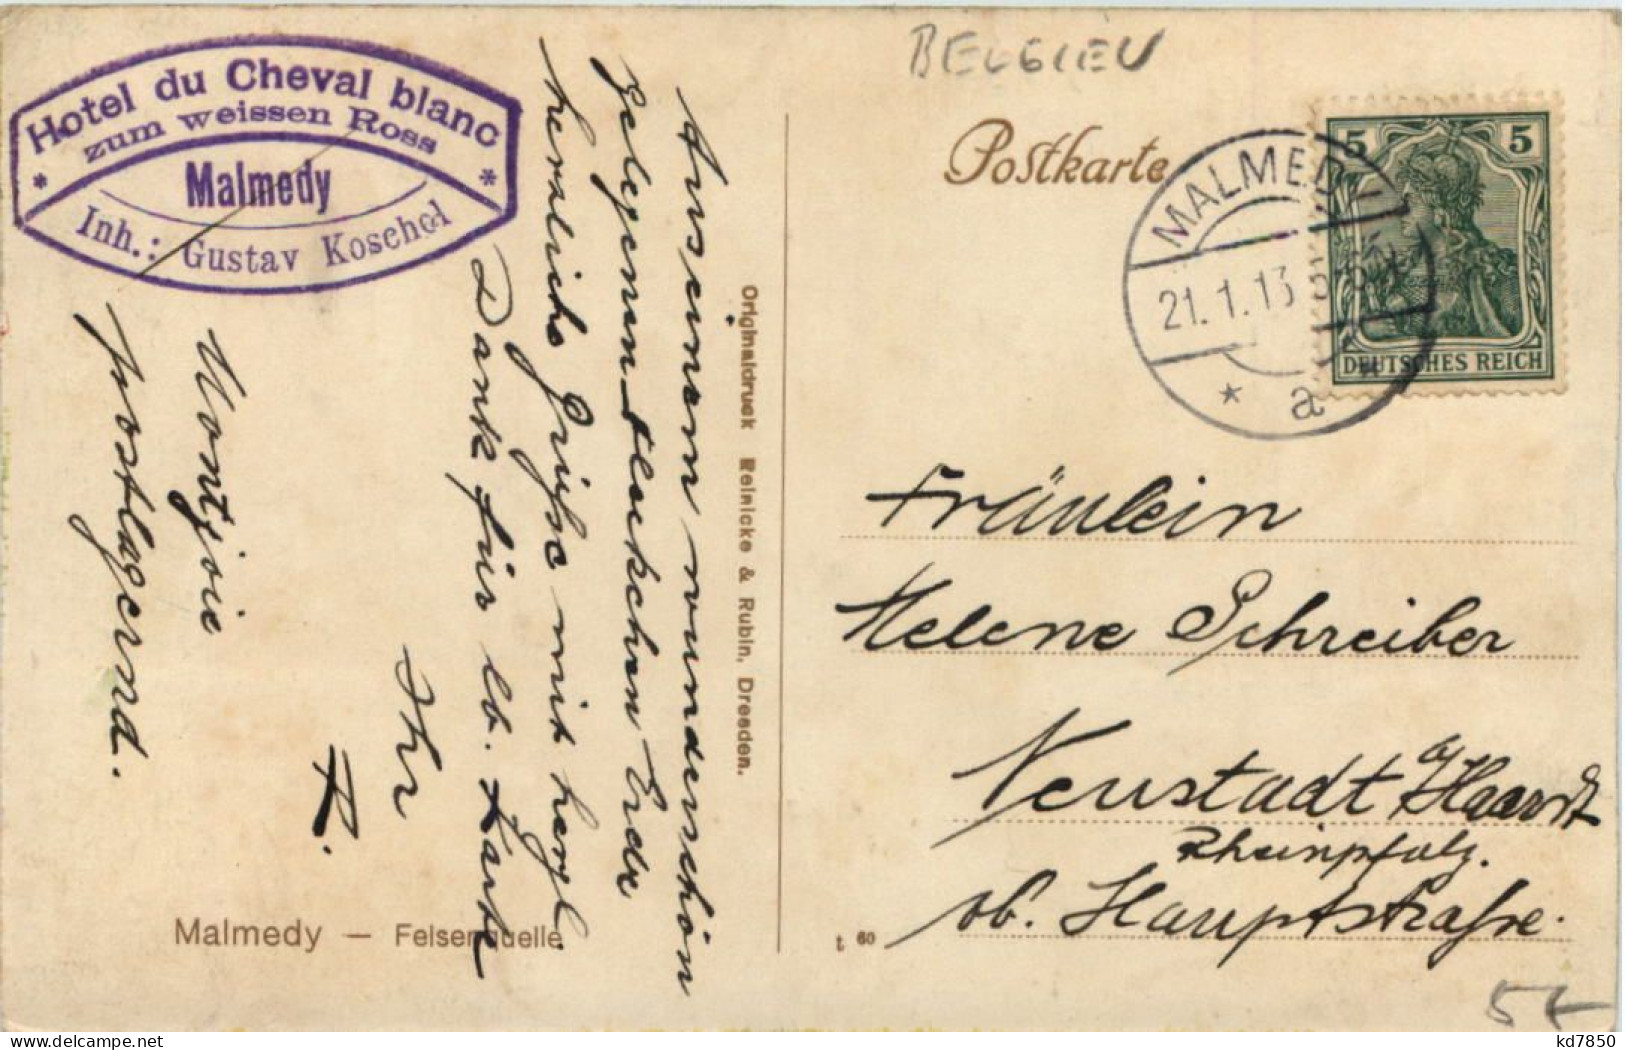 BELGIEN
Hotel du Cheval blanc
zum weissen Ross
* Malmedy *
Inh.: Gustav Koschel
Aus einem wunderschön
gelegenen Fleckchen Erde
herzliche Grüße mit herzl.
Dank für lb. Karte
Ihr
R.
Montjoie
postlagernd.
Malmedy — Felsenquelle
Originaldruck Reinicke & Rubin, Dresden.
Postkarte
MALMEDY
21.1.13
* a
5 5
DEUTSCHES REICH
Fräulein
Helene Schreiber
Neustadt a/Haardt
Rheinpfalz.
ob. Hauptstraße.
60
kd7850